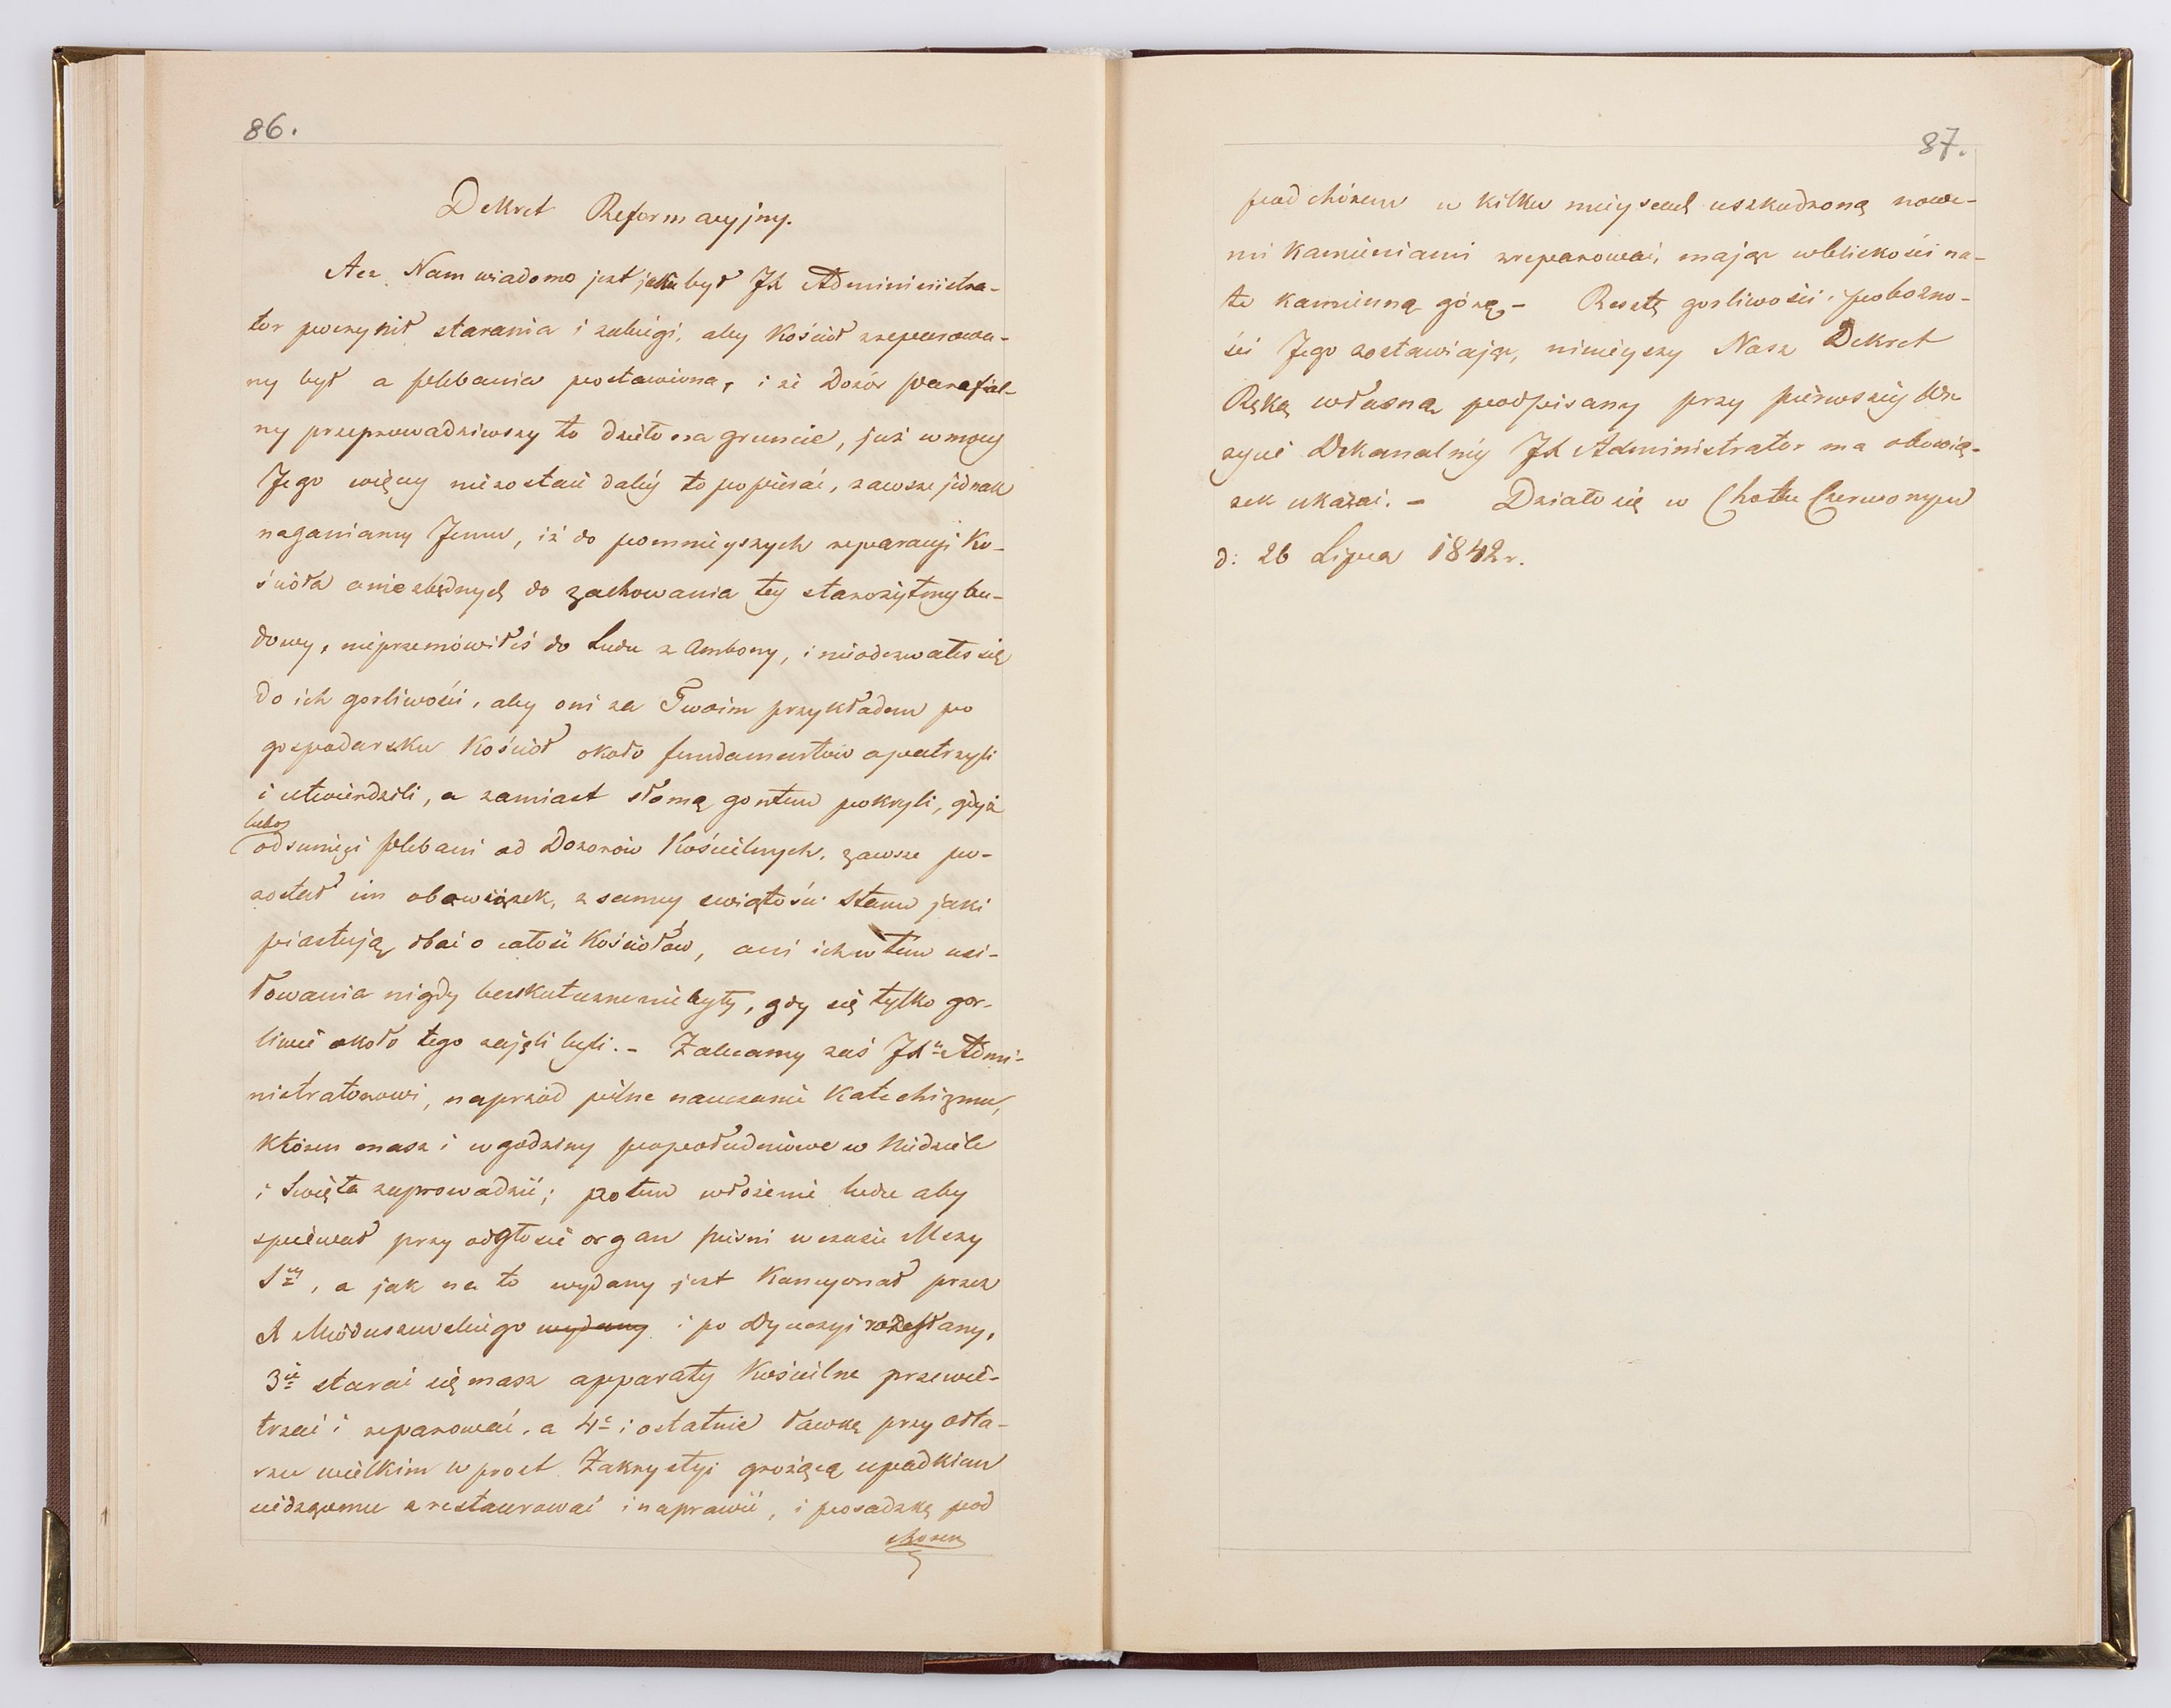 86.
Dekret Reformacyjny.
Acz Nam wiadomo jest jakie był JX Administra-
tor poczynił starania i zabiegi, aby Kościół zreparowa-
ny był a plebania postawiona, i że Dozór parafial-
ny przeprowadziwszy to dzieło na gruncie, już w mocy
Jego więcy niezostaie daléy to popiérać, zawsze jednak
naganiamy Jemu, iż do pomnieyszych reparacyi Ko-
ścioła a niezbędnych do zachowania tey starożytney bu-
dowy, nieprzemówiłeś do Ludu z Ambony, i nieodezwałeś się
do ich gorliwości, aby oni za Twoim przykładem po
gospodarsku Kościół około fundamentów opatrzyli
i utwierdzili, a zamiast słomą gontem pokryli, gdyż
lubo
odsunięci plebani od Dozorów Kościelnych, zawsze po-
został im obowiązek, z samey świętości stanu jaki
piastują dbać o całość Kościołów, ani ich w tém usi-
łowania nigdy bezskuteczne niebyły, gdy się tylko gor-
liwie około tego zajęli byli. - Zalecamy zaś JXu Admi-
nistratorowi, naprzód pilne nauczanie Katechizmu,
które masz i w godziny popołudniowe w Niedziele
i Święta zaprowadzić; potem włożenie ludu aby
spiéwał przy odgłosie organ pieśni w czasie Mszy
Sey, a jak na to wydany jest Kancyonał przez
X Mioduszewskiego wydany i po Dyecezyi rozesłany,
3ie starać się masz apparaty Kościelne przewie-
trzać i reparować, a 4e i ostatnie ławkę przy ołta-
rzu wielkim wprost Zakrystyi grożącą upadkiem
siedzącemu zrestaurować i naprawić, i posadzkę pod
chórem
87.
pod chórem w kilku mieyscach uszkodzoną nowe-
mi kamieniami zreparować, mając w bliskości na-
to kamienną górę, - Resztę gorliwości i pobożno-
ści Jego zostawiając, ninieyszy Nasz Dekret
Ręką własną podpisany przy piérwszéy Wi
zycie Dekanalnéy JX Administrator ma obowią-
zek ukazać. - Działo się w Chotlu Czerwonym
d: 26 Lipca 1842 r.